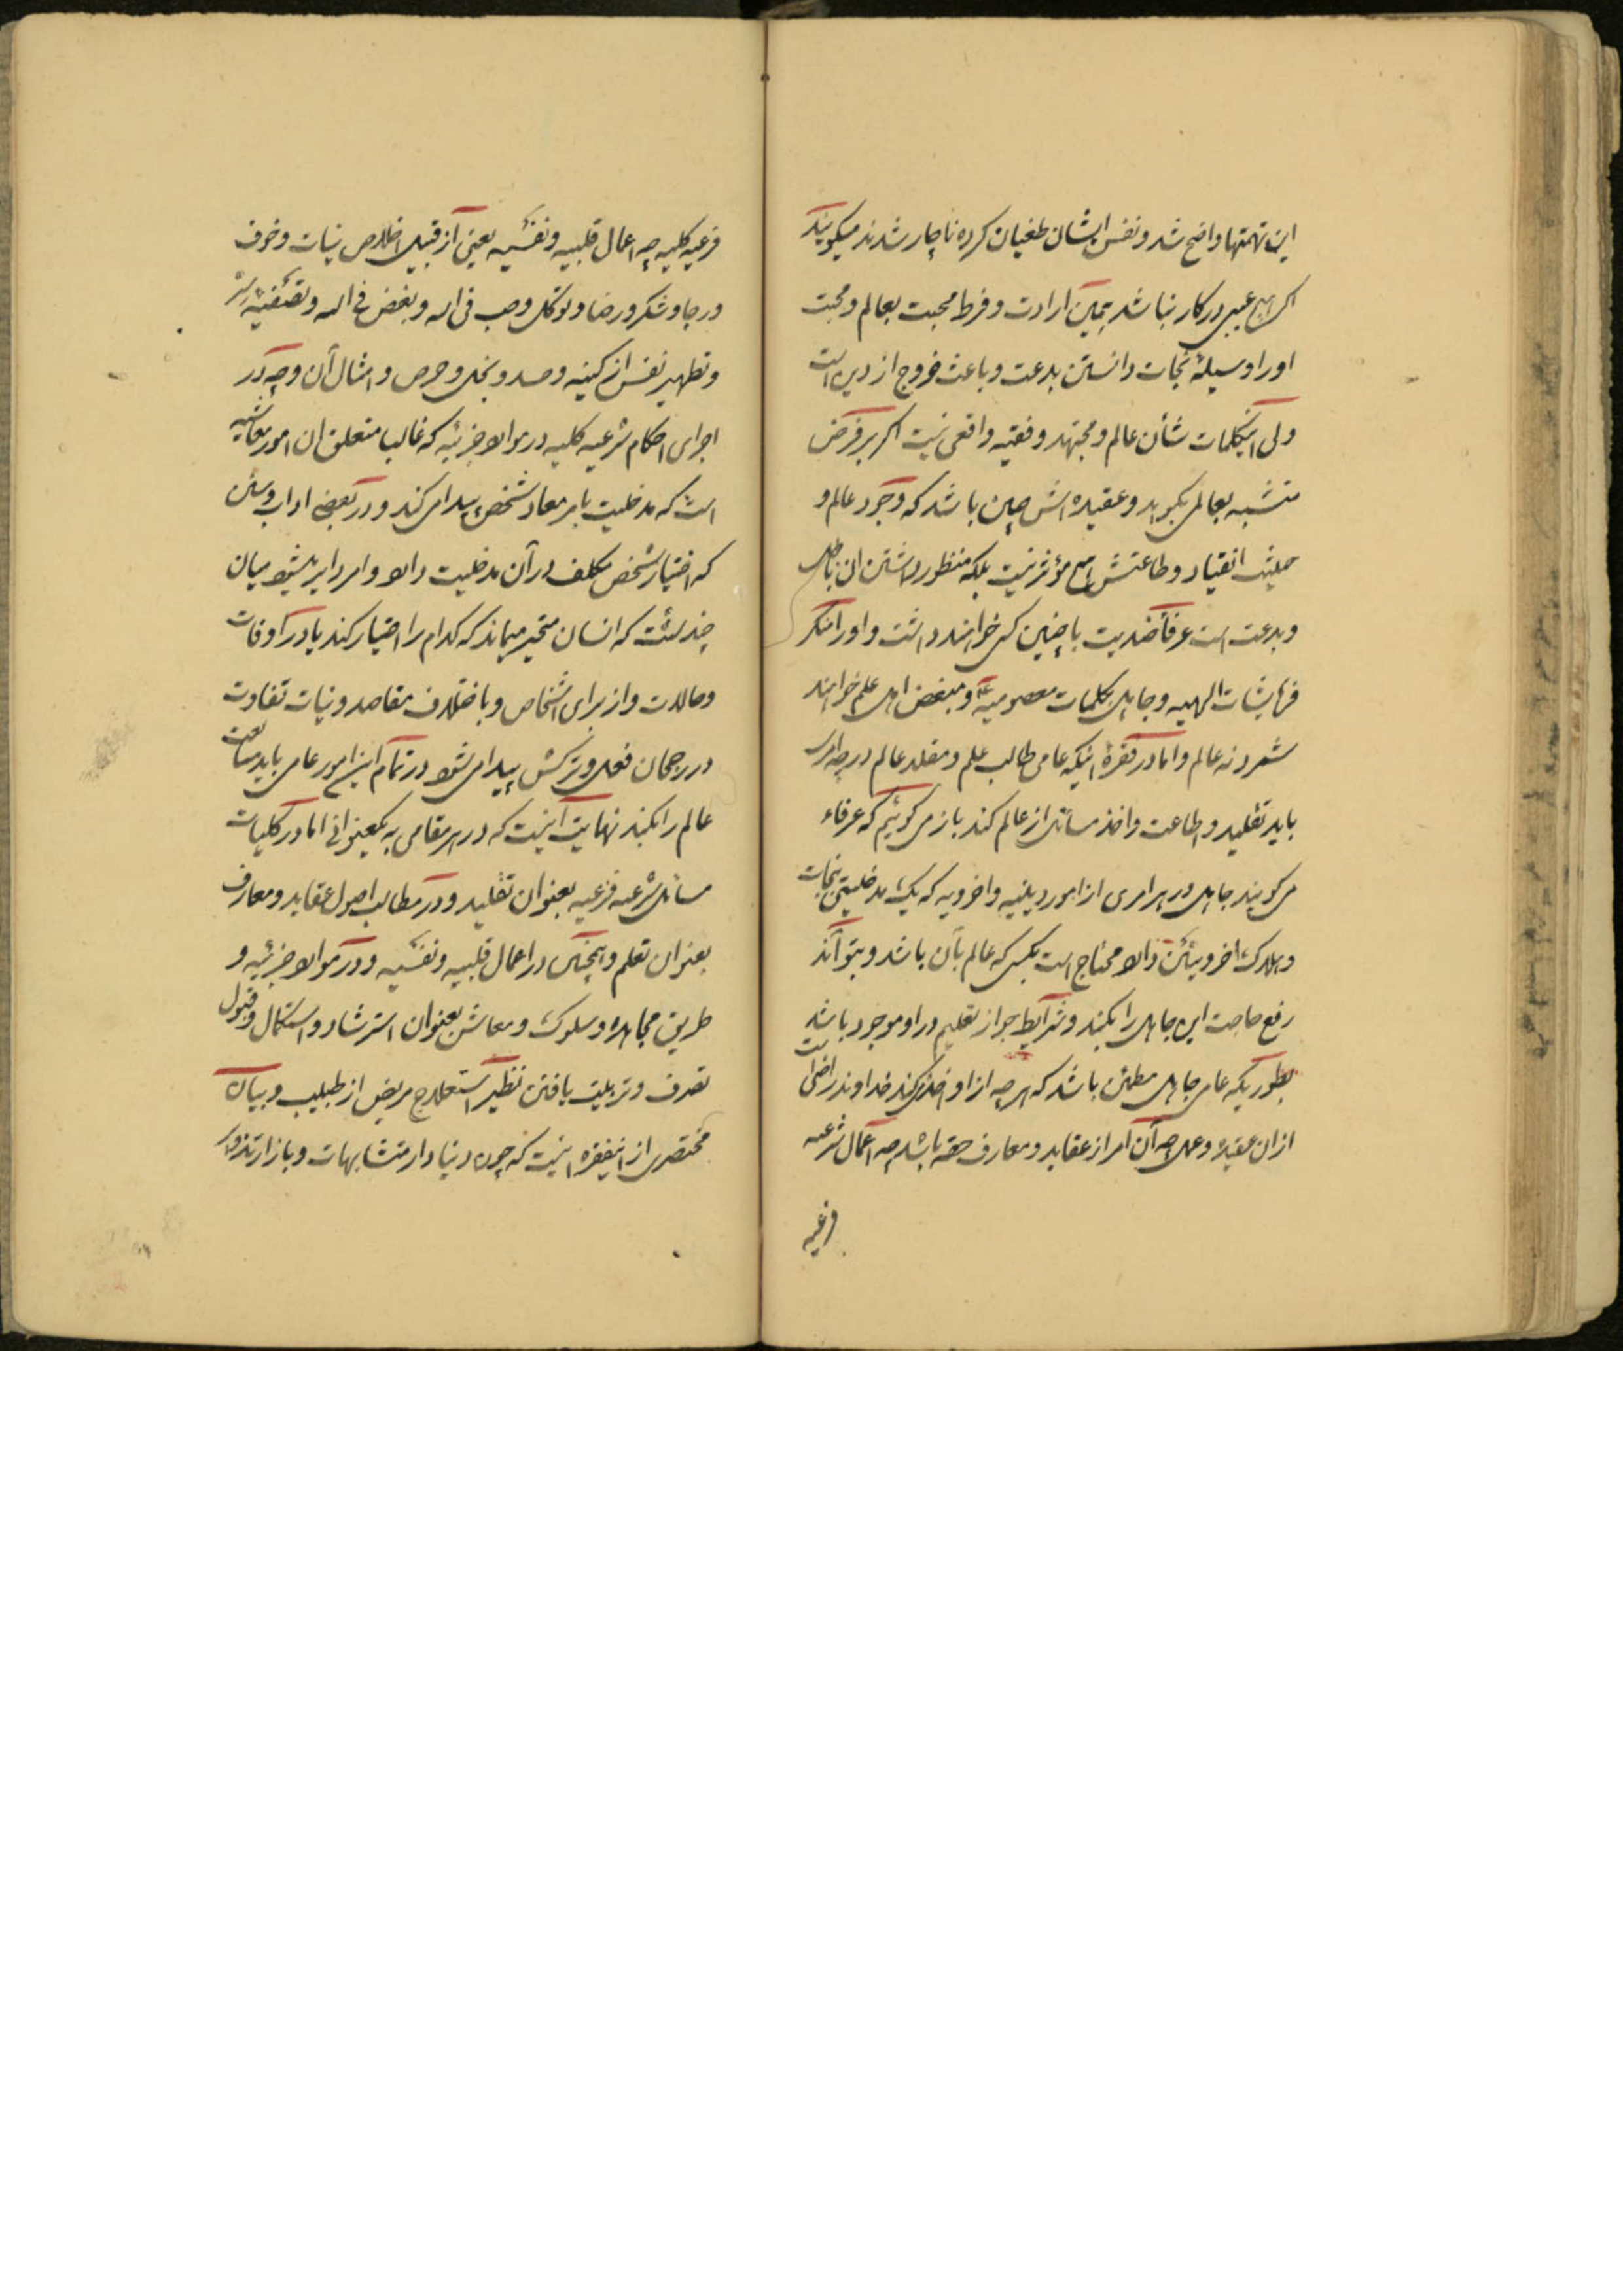 این تهمتها واضح شد و نفس ایشان طغیان کرده ناچار شدند میگویند
اگر هیچ عیبی در کار نباشد همین ارادت و فرط محبت بعالم و محبت
او را وسیلهٔ نجات دانستن بدعت و باعث خروج از دین است
ولی اینکلمات شأن عالم و مجتهد و فقیه واقعی نیست اگر بر فرض
متشبه بعالمی بگوید و عقیده اش چنین باشد که وجود عالم و
انقیاد و طاعتش هیچ مؤثر نیست بلکه منظور داشتن ان باطل
و بدعت است عرفا ضدیت با چنین کسی خواهند داشت و او را منکر
فرمایشات الهیه و جاهل بکلمات معصومیه و مبغض اهل علم خواهند
شمرد نه عالم و اما در فقرهٔ اینکه عامی طالب علم و مقلد عالم در چه امر
باید تقلید و اطاعت و اخذ مسائل از عالم کند باز می گوئیم که عرفاء
می گویند جاهل در هر امری از امور دینیه و اخرویه که یک مدخلیتی بنجات
و هلاکت اخرویش دارد محتاج است بکسی که عالم بآن باشد و بتواند
رفع حاجت این جاهل را بکند و شرایط جواز تعلیم در او موجود باشد
بطوریکه عامی جاهل مطمئن باشد که هر چه از او اخذ کند خداوند راضی است
از ان عقیده و عمل چه آن امر از عقاید و معارف حقه باشد چه اعمال شرعیه
فرعیه
فرعیه کلیه چه اعمال قلبیه و نفسیه یعنی از قبیل اخلاص نیات و خوف
و رجا و شکر و رضا و توکل و حب فی الله و بغض فی الله و تصفیهٔ سر
و تطهیر نفس از کینه و حسد و بخل و حرص و امثال آن و چه در
اجرای احکام شرعیه کلیه در موارد جزئیه که غالبا متعلق ان امور معاشیه
است که مدخلیت بامر معاد شخص پیدا می کند و در بعضی اداب و سنن
که اختیار شخص مکلف در آن مدخلیت دارد و امر دایر میشود میان
چند سنت که انسان متحیر میماند که کدام را اختیار کند یا در اوقات
و حالات و از برای اشخاص و باختلاف مقاصد و نیات تفاوت
در رجحان فعل و ترکش پیدا می شود در تمام این امور عامی باید متابعت
عالم را بکند نهایت اینست که در هر مقامی به یکعنوانی اما در کلیات
مسائل شرعیه فرعیه بعنوان تقلید و در مطالب اصول عقاید و معارف
بعنوان تعلم و همچنین در اعمال قلبیه و نفسیه و در موارد جزئیه و
طریق مجاهده و سلوک و معاش بعنوان استرشاد و استکمال و قبول
تصرف و تربیت یافتن نظیر استعلاج مریض از طبیب و بیان
مختصری از اینفقره اینست که چون دنیا دار متشابهات و بازار تزویر